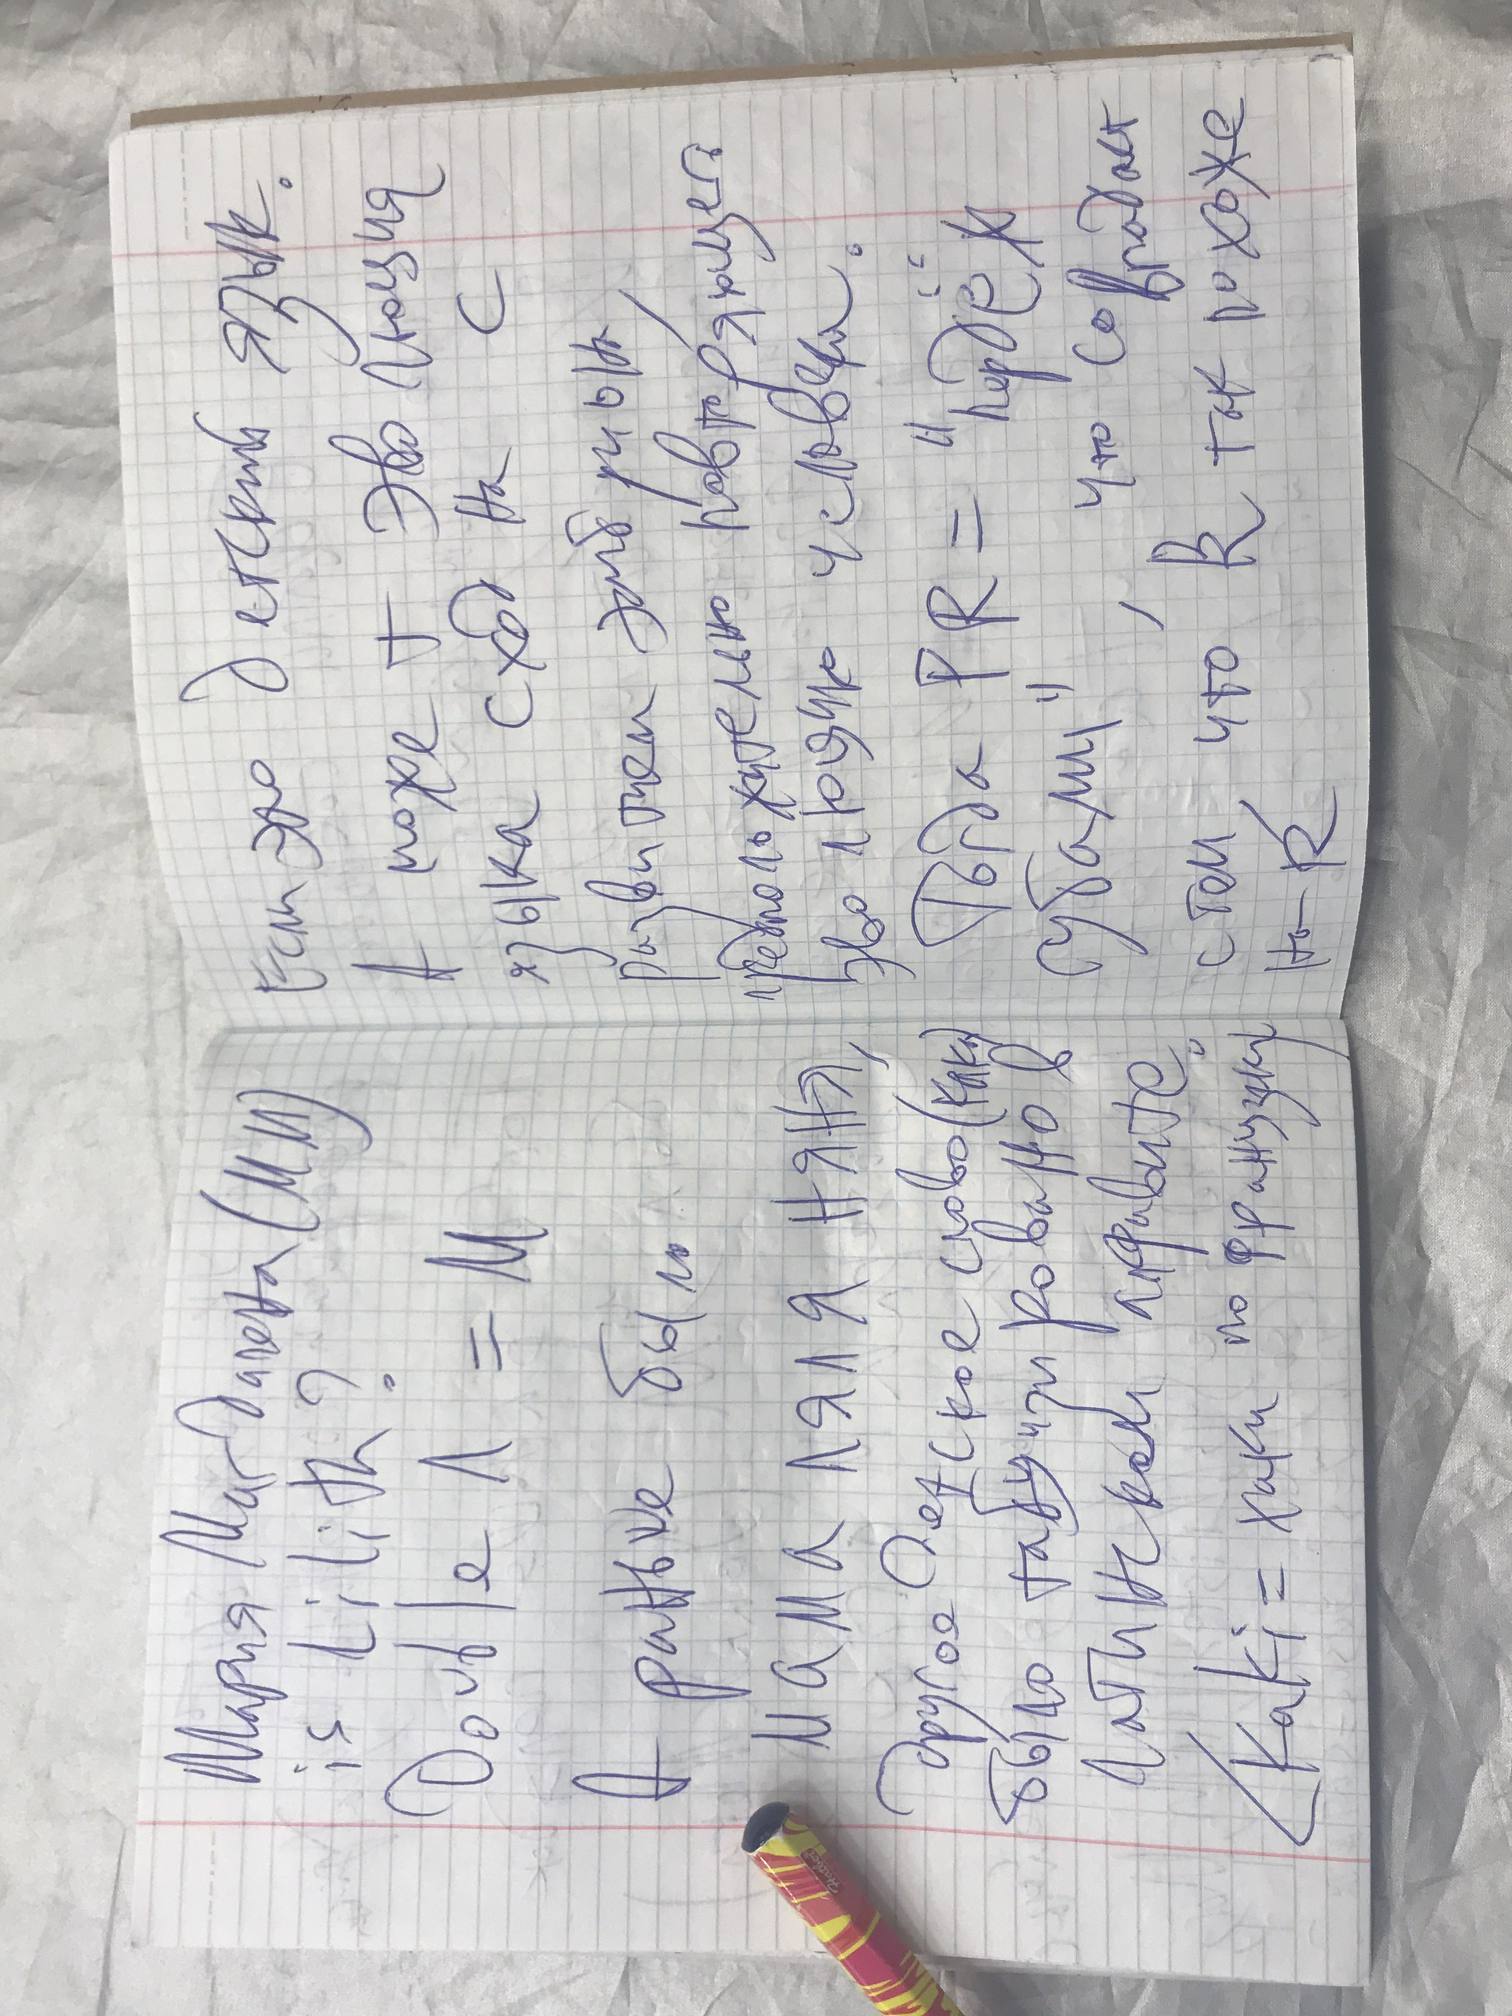 Мария Магдалена (ММ)
is Lilith?
Double Л = М
А раньше были
МАМА ЛЯЛЯ НЯНЯ,
другое Детское слово (каки)
было табуизировано в
Латинском алфавите:
Kaki = хаки по французки
Если это детский язык.
А может Эволюция
языка сходна с
развитием эмбриона,
предположительно повторяющего
эволюцию человека.
Тогда PR = "пордёж
губами", что совпадает
с тем что R так похоже
на Я